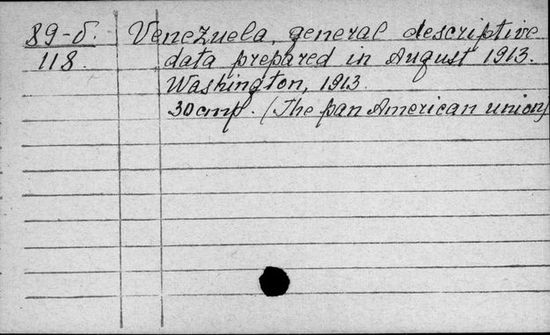 89-б. Venezuela, general descriptive
118. data prepared in August 1913.
Washington, 1913.
30 стр. (The pan American union)